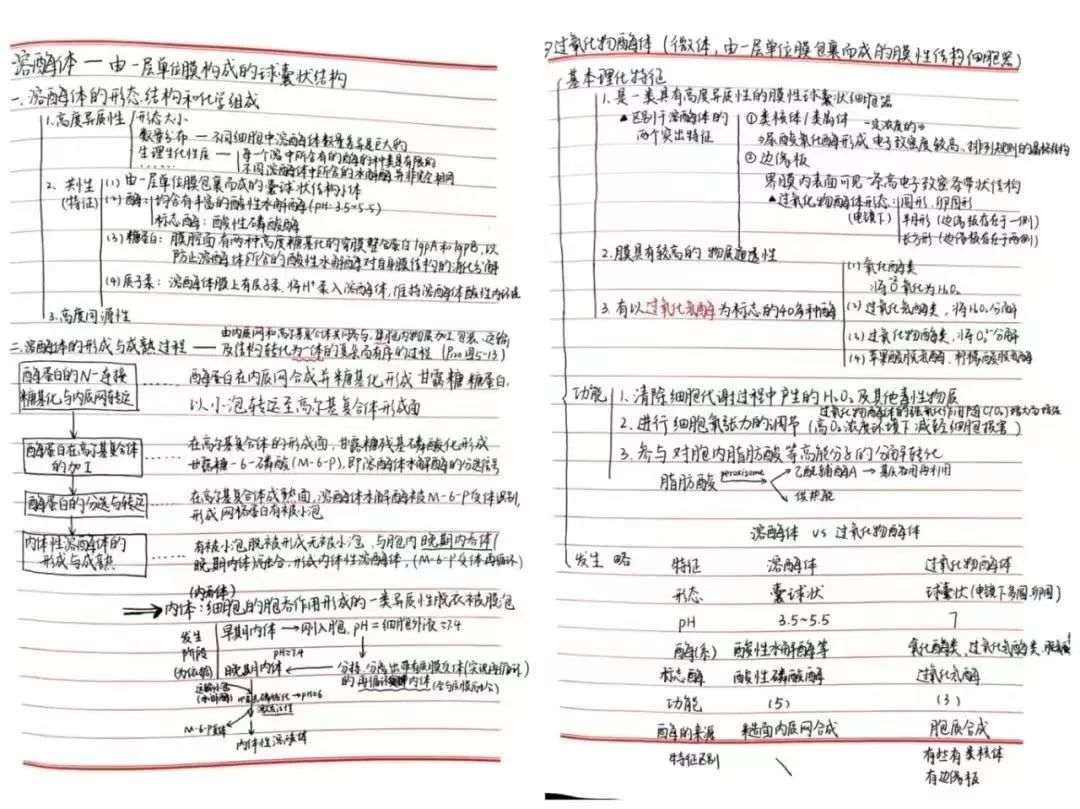 溶酶体 — 由一层单位膜构成的球囊状结构
一. 溶酶体的形态结构和化学组成
1. 高度异质性
形态大小
数量分布 — 不同细胞中溶酶体数量差异是巨大的
生理生化性质 — 每一个溶中所含有的酶的种类是有限的
不同溶酶体中所含的水解酶并非完全相同
2. 共性(特征)
(1) 由一层单位膜包裹而成的囊球状结构小体
(2) 酶: 均含有丰富的酸性水解酶(pH: 3.5~5.5)
标志酶: 酸性磷酸酶
(3) 糖蛋白: 膜腔面有两种高度糖基化的穿膜整合蛋白 lgpA 和 lgpB, 以
防止溶酶体所含的酸性水解酶对自身膜结构的消化分解
(4) 质子泵: 溶酶体膜上有质子泵, 将H⁺泵入溶酶体, 维持溶酶体酸性内环境
3. 高度同源性
二. 溶酶体的形成与成熟过程 — 由内质网和高尔基复合体共同参与, 集胞内物质加工、包装、运输
及结构转化为一体的复杂而有序的过程 (P100 图5-13)
酶蛋白的N-连接糖基化与内质网转运 …… 酶蛋白在内质网合成并糖基化形成甘露糖糖蛋白,
以小泡转运至高尔基复合体形成面
酶蛋白在高尔基复合体的加工 …… 在高尔基复合体的形成面, 甘露糖残基磷酸化形成
甘露糖-6-磷酸(M-6-P), 即溶酶体水解酶的分选信号
酶蛋白的分选与转运 …… 在高尔基复合体成熟面, 溶酶体水解酶被M-6-P受体识别,
形成网格蛋白有被小泡
内体性溶酶体的形成与成熟 …… 有被小泡脱被形成无被小泡, 与胞内晚期内吞体/
晚期内体融合, 形成内体性溶酶体, (M-6-P受体再循环)
(内吞体)
内体: 细胞的胞吞作用形成的一类异质性脱衣被膜泡
发生阶段
早期内体 → 刚入胞, pH=细胞外液=7.4
pH=7.4
晚期内体 ← 分拣、分离出带有质膜受体
的再循环内体
→pH=6
M-6-P受体
内体性溶酶体
过氧化物酶体 (微体, 由一层单位膜包裹而成的膜性结构细胞器)
基本理化特征
1. 是一类具有高度异质性的膜性球囊状细胞器
▲区别于溶酶体的两个突出特征
①类核体/类晶体 一定浓度的
→尿酸氧化酶形成电子致密度较高、排列规则的晶格结构
②边缘板
界膜内表面可见一条高电子致密条带状结构
▲过氧化物酶体形态: 圆形、卵圆形
(电镜下)
半月形 (边缘板存在于一侧)
长方形 (边缘板存在于两侧)
2. 膜具有较高的物质通透性
3. 有以过氧化氢酶为标志的40多种酶
(1) 氧化酶类
(2) 过氧化氢酶类, 将H₂O₂分解
(3) 过氧化物酶类
(4) 苹果酸脱氢酶、柠檬酸脱氢酶
功能
1. 清除细胞代谢过程中产生的H₂O₂及其他毒性物质
2. 进行细胞氧张力的调节 (高O₂浓度环境下减轻细胞损害)
3. 参与对胞内脂肪酸等高能分子的分解转化
脂肪酸 peroxisome → 乙酰辅酶A
→ 供热能
发生 略
溶酶体 VS 过氧化物酶体
特征 溶酶体 过氧化物酶体
形态 囊球状 球囊状(电镜下多圆、卵圆)
pH 3.5~5.5 7
酶(系) 酸性水解酶等 氧化酶类、过氧化氢酶类
标志酶 酸性磷酸酶 过氧化氢酶
功能 (5) (3)
酶的来源 粗造面内质网合成 胞质合成
特征区别 \ 有些有类核体
有边缘板